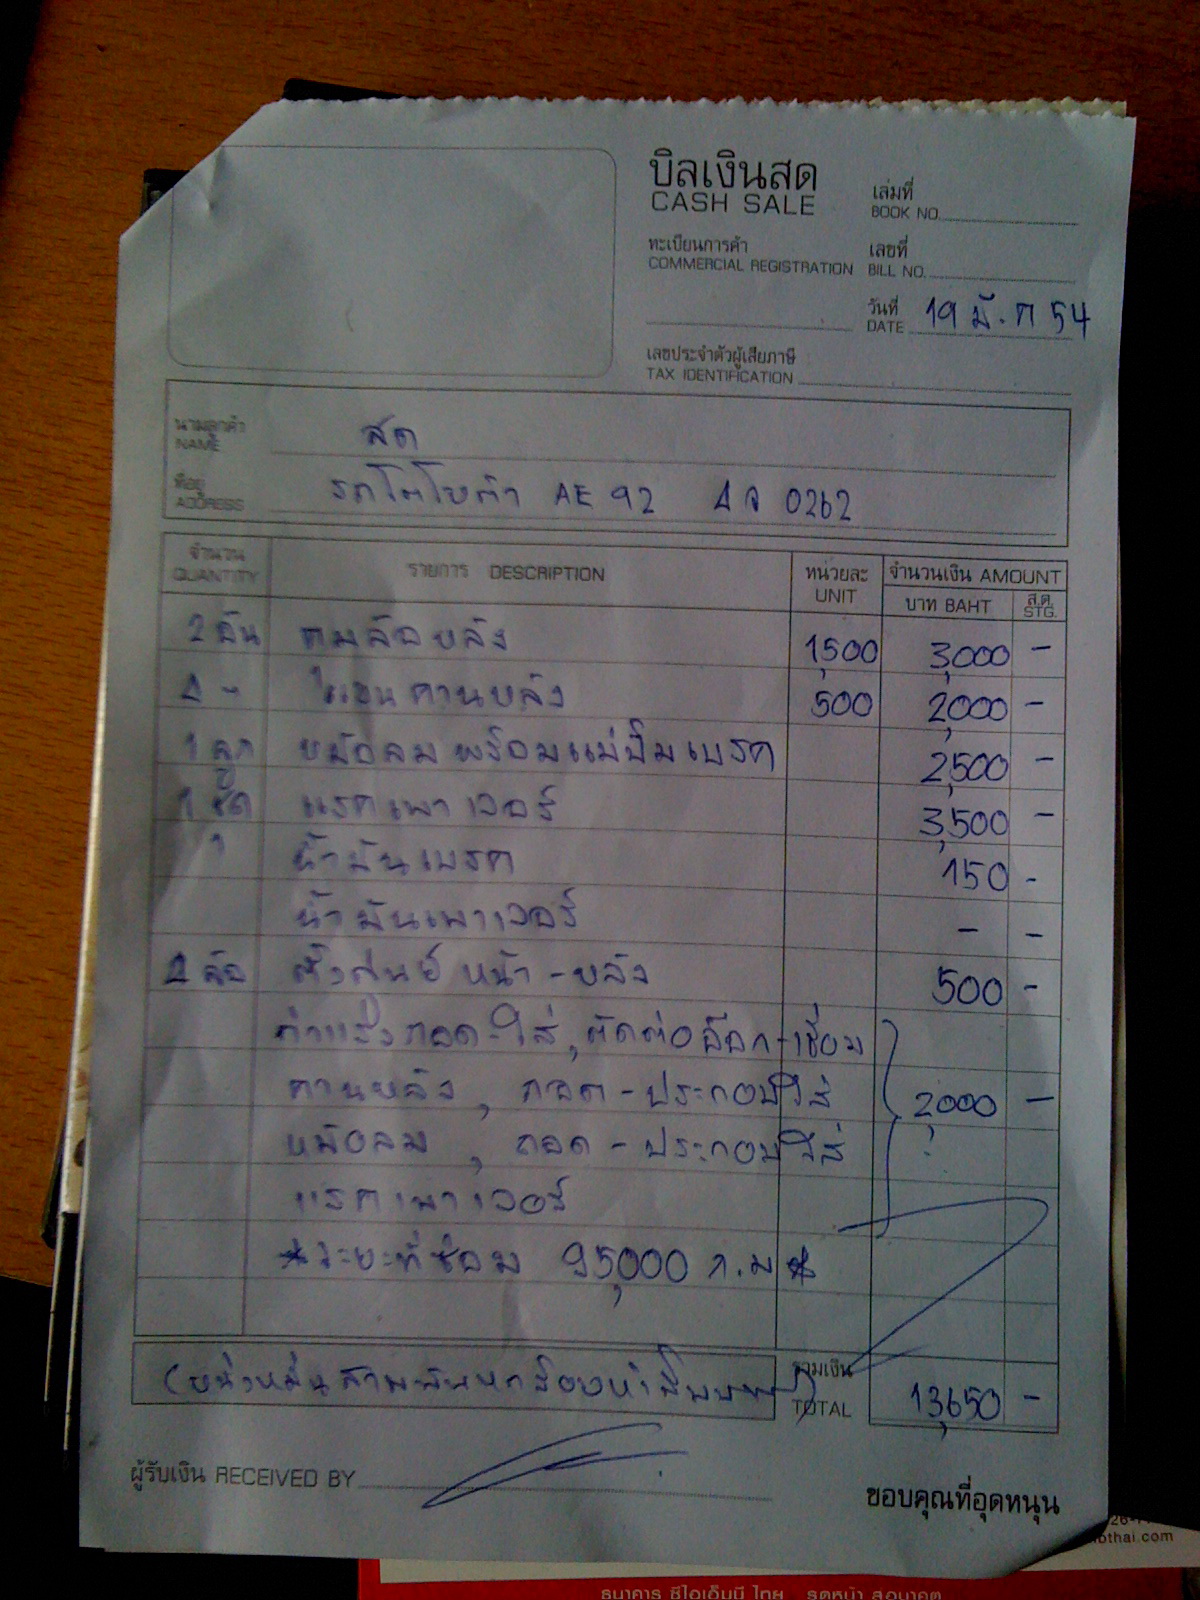 บิลเงินสด
CASH SALE
เล่มที่
BOOK NO.
ทะเบียนการค้า
COMMERCIAL REGISTRATION
เลขที่
BILL NO.
วันที่
DATE 19 มี.ค 54
เลขประจำตัวผู้เสียภาษี
TAX IDENTIFICATION
นามลูกค้า
NAME สด
ที่อยู่
ADDRESS รถโตโยต้า AE 92 4จ 0262
จำนวน
QUANTITY รายการ DESCRIPTION หน่วยละ UNIT จำนวนเงิน AMOUNT
บาท BAHT ส.ต. STG.
2 อัน ดุมล้อหลัง 1,500 3,000 -
4 " แขนคานหลัง 500 2,000 -
1 ลูก หม้อลมพร้อมแม่ปั๊มเบรค 2,500 -
1 ชุด แรคเพาเวอร์ 3,500 -
น้ำมันเบรค 150 -
น้ำมันเพาเวอร์ - -
4 ล้อ ตั้งศูนย์ หน้า - หลัง 500 -
ค่าแรงถอด-ใส่, ตัดต่ออ๊อก-เชื่อม
คานหลัง, ถอด - ประกอบใส่ 2,000 -
หม้อลม, ถอด - ประกอบใส่
แรคเพาเวอร์
*ระยะที่ซ่อม 95,000 ก.ม*
(หนึ่งหมื่นสามพันหกร้อยห้าสิบบาท) รวมเงิน
TOTAL 13,650 -
ผู้รับเงิน RECEIVED BY
ขอบคุณที่อุดหนุน
bthai.com
ธนาคาร ซีไอเอ็มบี ไทย